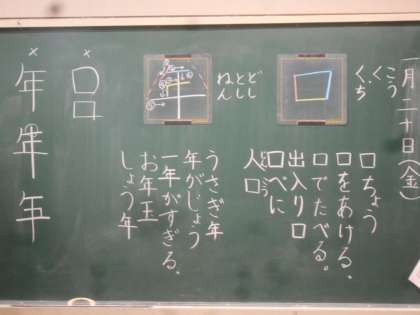 一月二十日(金)
こう
く
くち
口
口ちょう
口をあける。
口でたべる。
出入り口
口べに
人口
こう
どし
とし
ねん
年
うさぎ年
年がじょう
一年がすぎる。
お年玉
しょう年
×
口
×
年
年
年